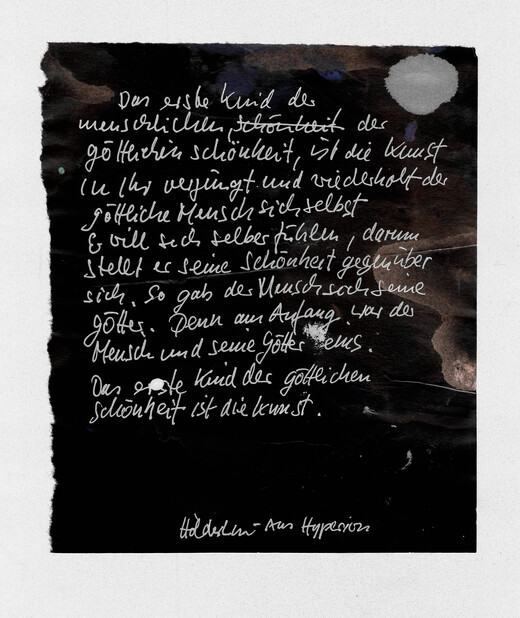 Das erste Kind der
menschlichen, schönheit der
göttlichen schönheit, ist die Kunst
in ihr verjüngt und wiederholt der
göttliche Mensch sich selbst
Er will sich selber fühlen, darum
stellt er seine Schönheit gegenüber
sich. So gab der Mensch sich seine
götter. Denn am Anfang war der
Mensch und seine Götter eins.
Das erste Kind der göttlichen
schönheit ist die Kunst.
Hölderlin - Aus Hyperion